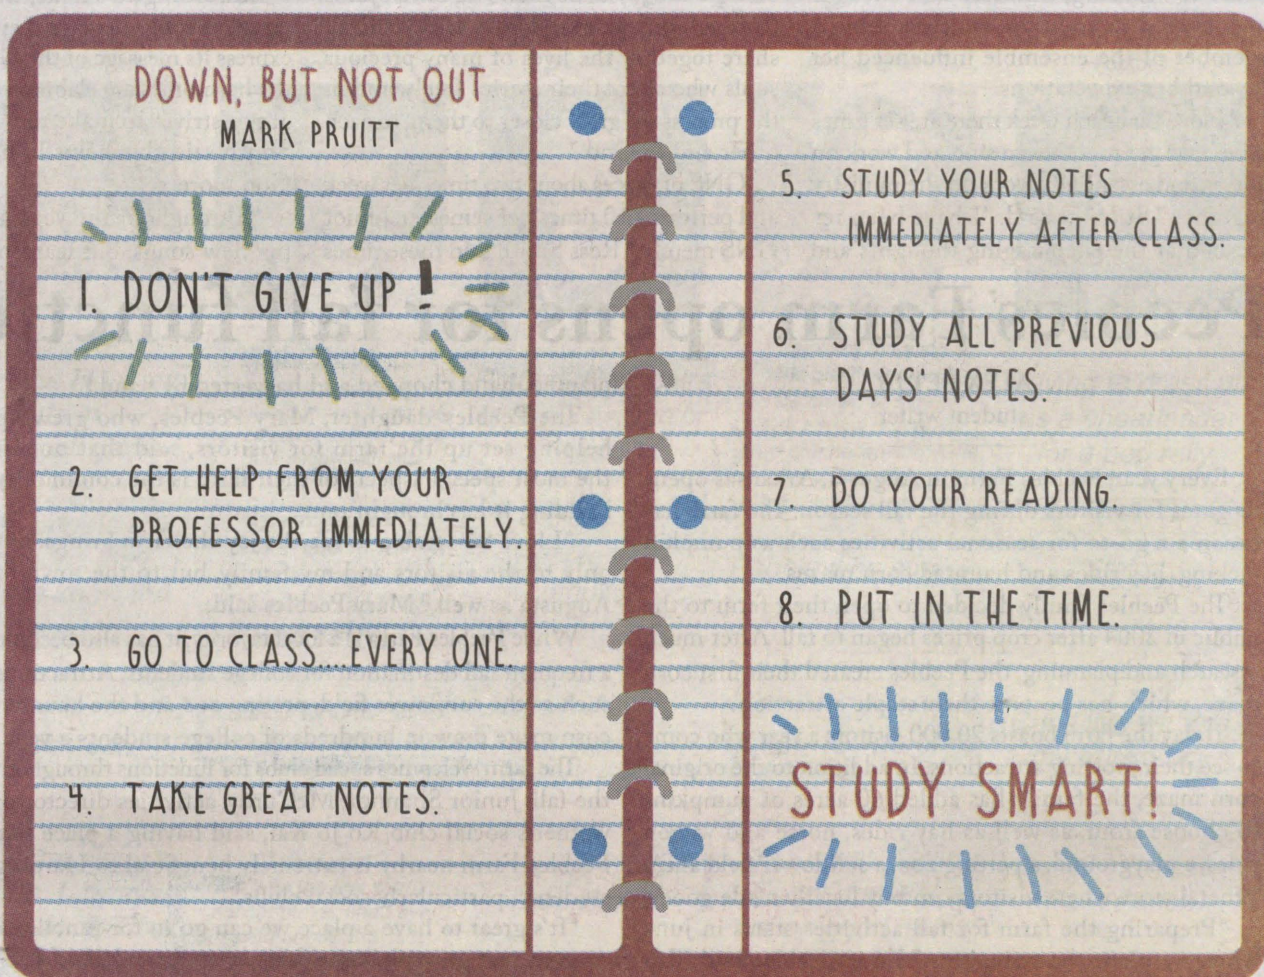 DOWN, BUT NOT OUT
MARK PRUITT
1. DON'T GIVE UP !
2. GET HELP FROM YOUR
PROFESSOR IMMEDIATELY.
3. GO TO CLASS....EVERY ONE.
4. TAKE GREAT NOTES.
5. STUDY YOUR NOTES
IMMEDIATELY AFTER CLASS.
6. STUDY ALL PREVIOUS
DAYS' NOTES.
7. DO YOUR READING.
8. PUT IN THE TIME.
STUDY SMART!